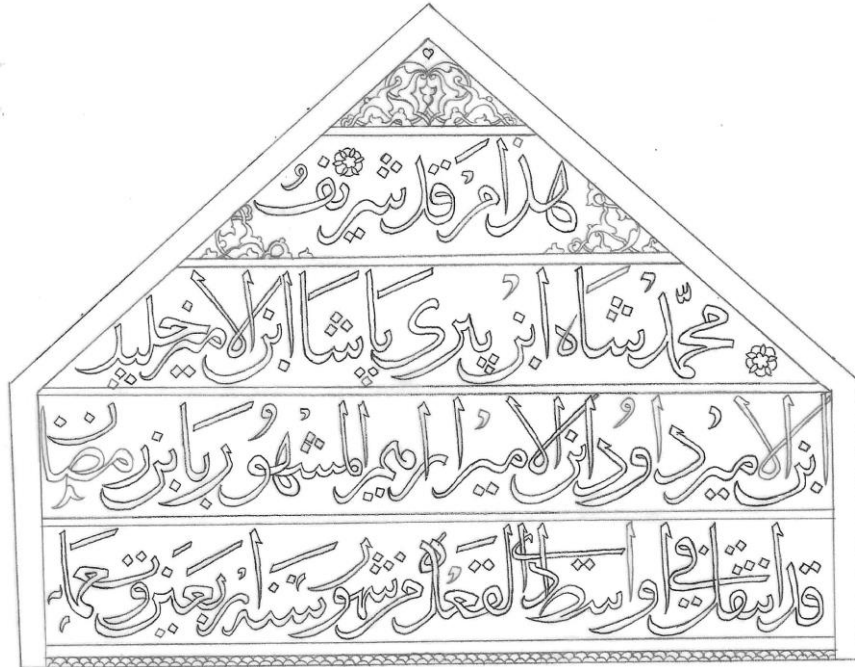 هذا مرقد شريف
محمد شاه ابن پيرى پاشا ابن الامير خليل
ابن الامير داود ابن الامير ابراهيم المشهور بابن رمضان
قد انتقل في اواسط ذي القعدة من شهور سنة اربعين وتسعمائة